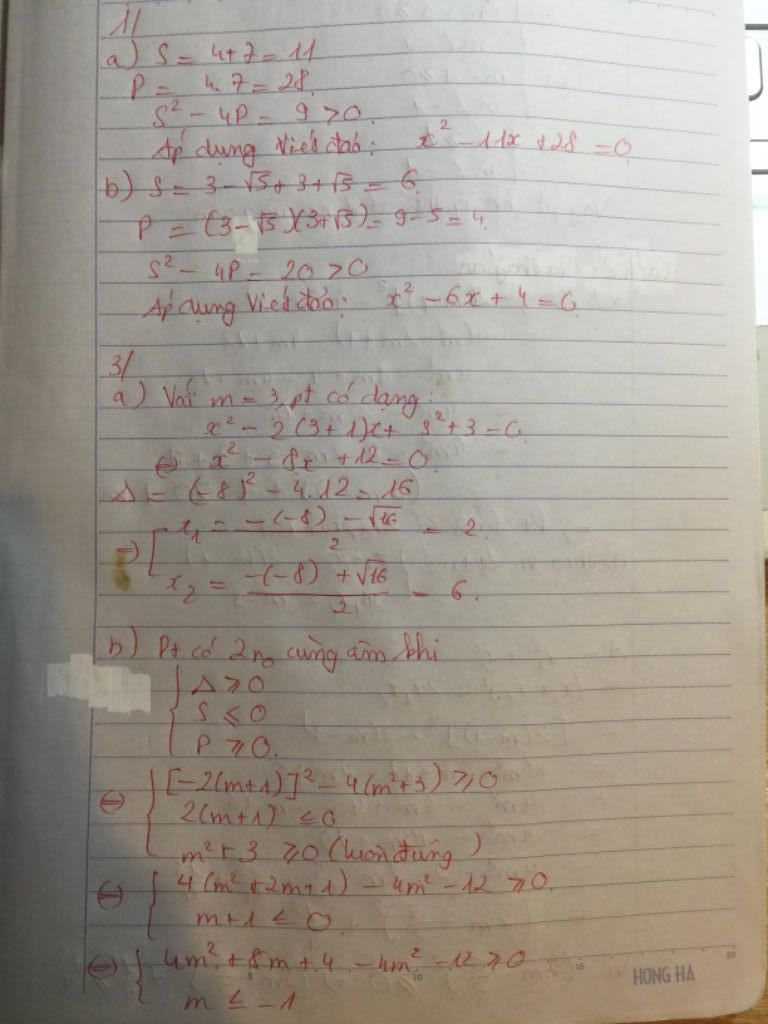 1/
a) S = 4+7 = 11
P = 4.7 = 28.
S² - 4P = 9 > 0.
Áp dụng Viét đảo: x² - 11x + 28 = 0
b) S = 3 - √5 + 3 + √5 = 6.
P = (3 - √5)(3+√5) = 9 - 5 = 4.
S² - 4P = 20 > 0
Áp dụng Viét đảo: x² - 6x + 4 = 0
3/
a) Với m = 3, pt có dạng:
x² - 2(3+1)x + 3² + 3 = 0
⇔ x² - 8x + 12 = 0
Δ = (-8)² - 4.12 = 16
⇒ [ x₁ = (-(-8) - √16)/2 = 2.
x₂ = (-(-8) + √16)/2 = 6.
b) Pt có 2 n₀ cùng âm khi
{ Δ ≥ 0
S ≤ 0
P ≥ 0.
⇔ { [-2(m+1)]² - 4(m²+3) ≥ 0
2(m+1) ≤ 0
m² + 3 ≥ 0 (luôn đúng)
⇔ { 4(m² + 2m + 1) - 4m² - 12 ≥ 0.
m + 1 ≤ 0
⇔ { 4m² + 8m + 4 - 4m² - 12 ≥ 0
m ≤ -1
HONG HA